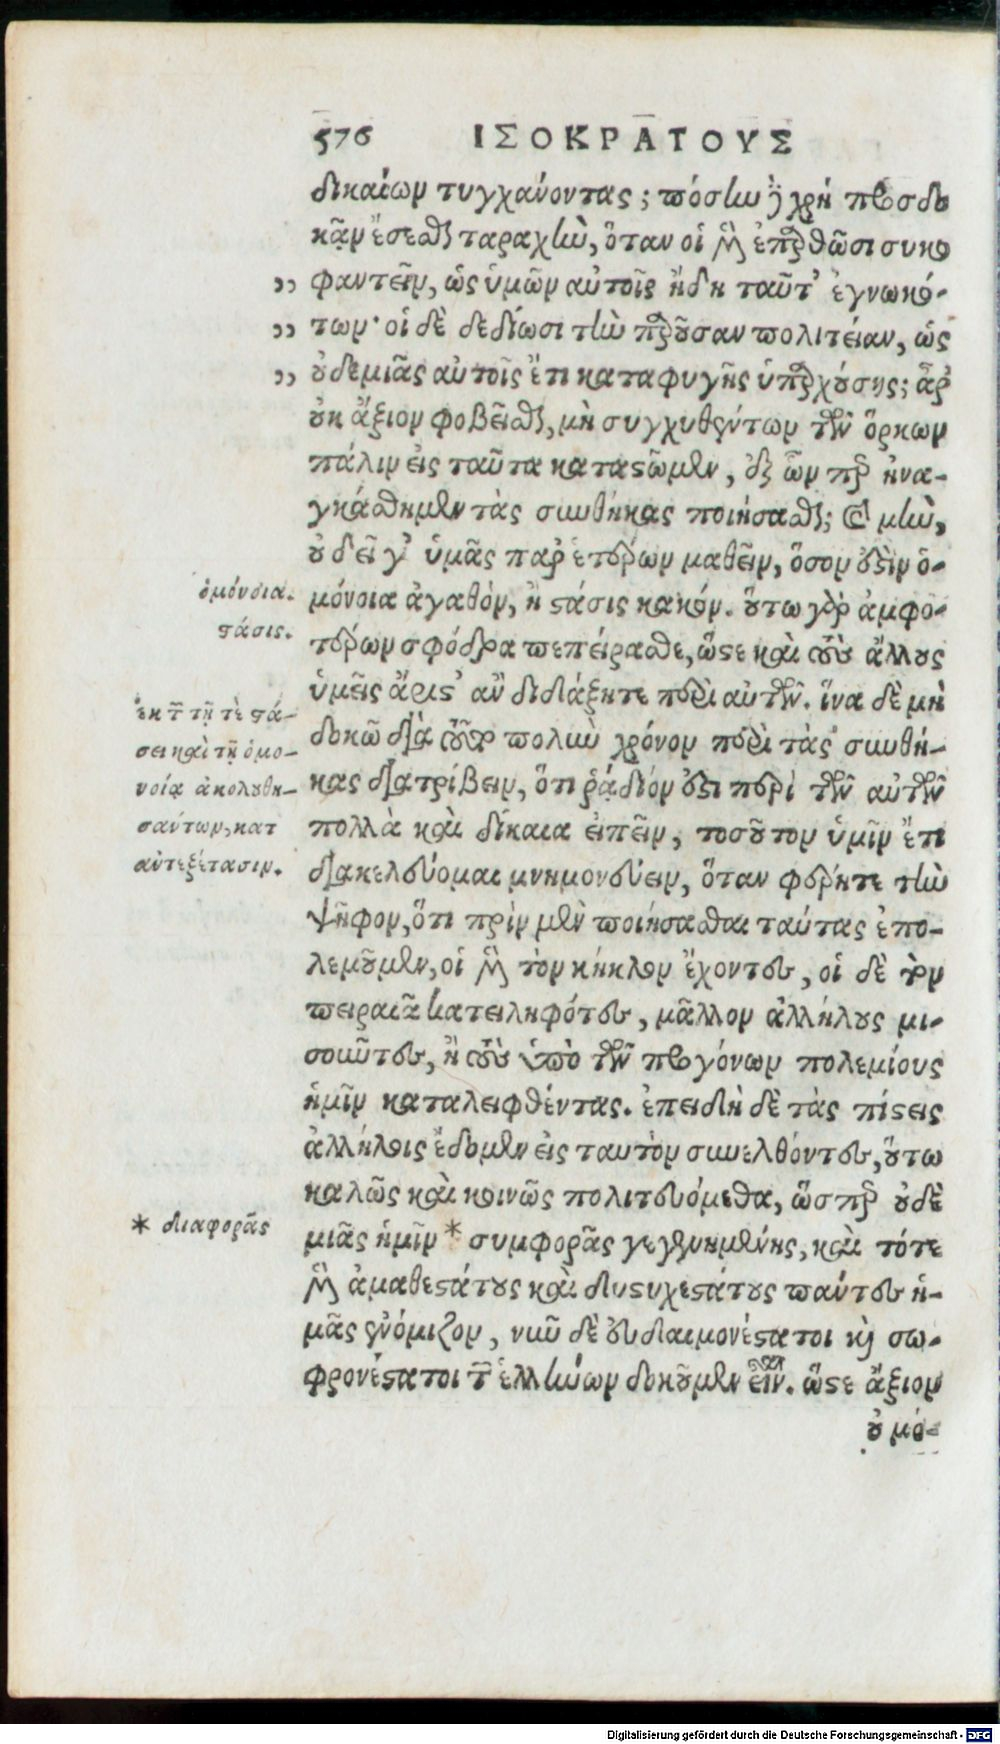 576 ΙΣΟΚΡΑΤΟΥΣ
δικαίων τυγχάνοντας; πόσην δὲ χρὴ προσδο
κᾷν ἔσεσθαι ταραχὴν, ὅταν οἱ μὲν ἐπαρθῶσι συκο
,, φαντεῖν, ὡς ὑμῶν αὐτοῖς ἤδη ταῦτ' ἐγνωκό-
,, των· οἱ δὲ δεδίωσι τὴν παροῦσαν πολιτείαν, ὡς
,, οὐδεμιᾶς αὐτοῖς ἔτι καταφυγῆς ὑπαρχούσης; ἆρ'
οὐκ ἄξιον φοβεῖσθαι, μὴ συγχυθέντων τῶν ὅρκων
πάλιν εἰς ταῦτα καταστῶμεν, ἐξ ὧν περ ἠνα-
γκάσθημεν τὰς συνθήκας ποιήσασθαι; καὶ μὴν,
οὐ δεῖ γ' ὑμᾶς παρ' ἑτέρων μαθεῖν, ὅσον ἐστὶν ὁ-
ὁμόνοια.
μόνοια ἀγαθὸν, ἢ στάσις κακόν. οὕτω γὰρ ἀμφο-
στάσις.
τέρων σφόδρα πεπείρασθε, ὥστε καὶ τοὺς ἄλλους
ὑμεῖς ἄριστ' ἂν διδάξητε περὶ αὐτῶν. ἵνα δὲ μὴ
ἐκ τῶν τῇ τε στά-
σει καὶ τῇ ὁμο-
νοίᾳ ἀκολουθη-
σάντων, κατ
αὐτεξέτασιν.
δοκῶ διὰ τοῦτο πολὺν χρόνον περὶ τὰς συνθή-
κας διατρίβειν, ὅτι ῥᾴδιόν ἐστι περὶ τῶν αὐτῶν
πολλὰ καὶ δίκαια εἰπεῖν, τοσοῦτον ὑμῖν ἔτι
διακελεύομαι μνημονεύειν, ὅταν φέρητε τὴν
ψῆφον, ὅτι πρὶν μὲν ποιήσασθαι ταύτας ἐπο-
λεμοῦμεν, οἱ μὲν τὸν κήκλον ἔχοντες, οἱ δὲ τὸν
πειραιᾶ κατειληφότες, μᾶλλον ἀλλήλους μι-
σοῦντες, ἢ τοὺς ὑπὸ τῶν προγόνων πολεμίους
ἡμῖν καταλειφθέντας. ἐπειδὴ δὲ τὰς πίστεις
ἀλλήλοις ἔδομεν εἰς ταυτὸν συνελθόντες, οὕτω
καλῶς καὶ κοινῶς πολιτευόμεθα, ὥσπερ οὐδε
* διαφορᾶς
μιᾶς ἡμῖν * συμφορᾶς γεγενημένης, καὶ τότε
μὲν ἀμαθεστάτους καὶ δυστυχεστάτους πάντες ἡ-
μᾶς ἐνόμιζον, νῦν δὲ εὐδαιμονέστατοι καὶ σω-
φρονέστατοι τῶν ἑλλήνων δοκοῦμεν εἶναι. ὥστε ἄξιον
οὐ μό-
Digitalisierung gefördert durch die Deutsche Forschungsgemeinschaft - DFG